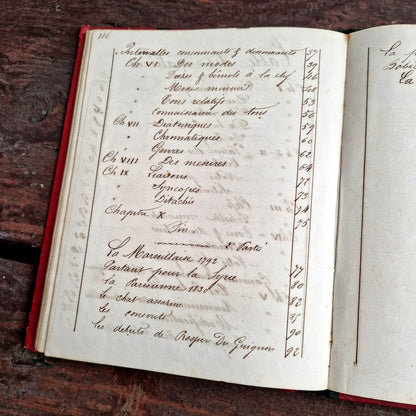 110
Intervalles consonnants & dissonnants 37
Ch VI Des modes 39
" Dièzes & bémols à la clef 46
" Mode mineur
" Tons relatifs 53
" Connaissance des tons 56
Ch VII Diatoniques 59
" Chromatiques 60
" Genres 62
Ch VIII Des mesures 64
Ch IX Liaisons 72
" Syncopes 73
" Détachés 74
Chapitre X 75
Fin.
2e Partie
La Marseillaise 1792 77
Partant pour la Syrie 80
La Parisienne 1830 82
Le chat
Les conscrits 90
Les débuts de Prosper Du Guignon 92
La